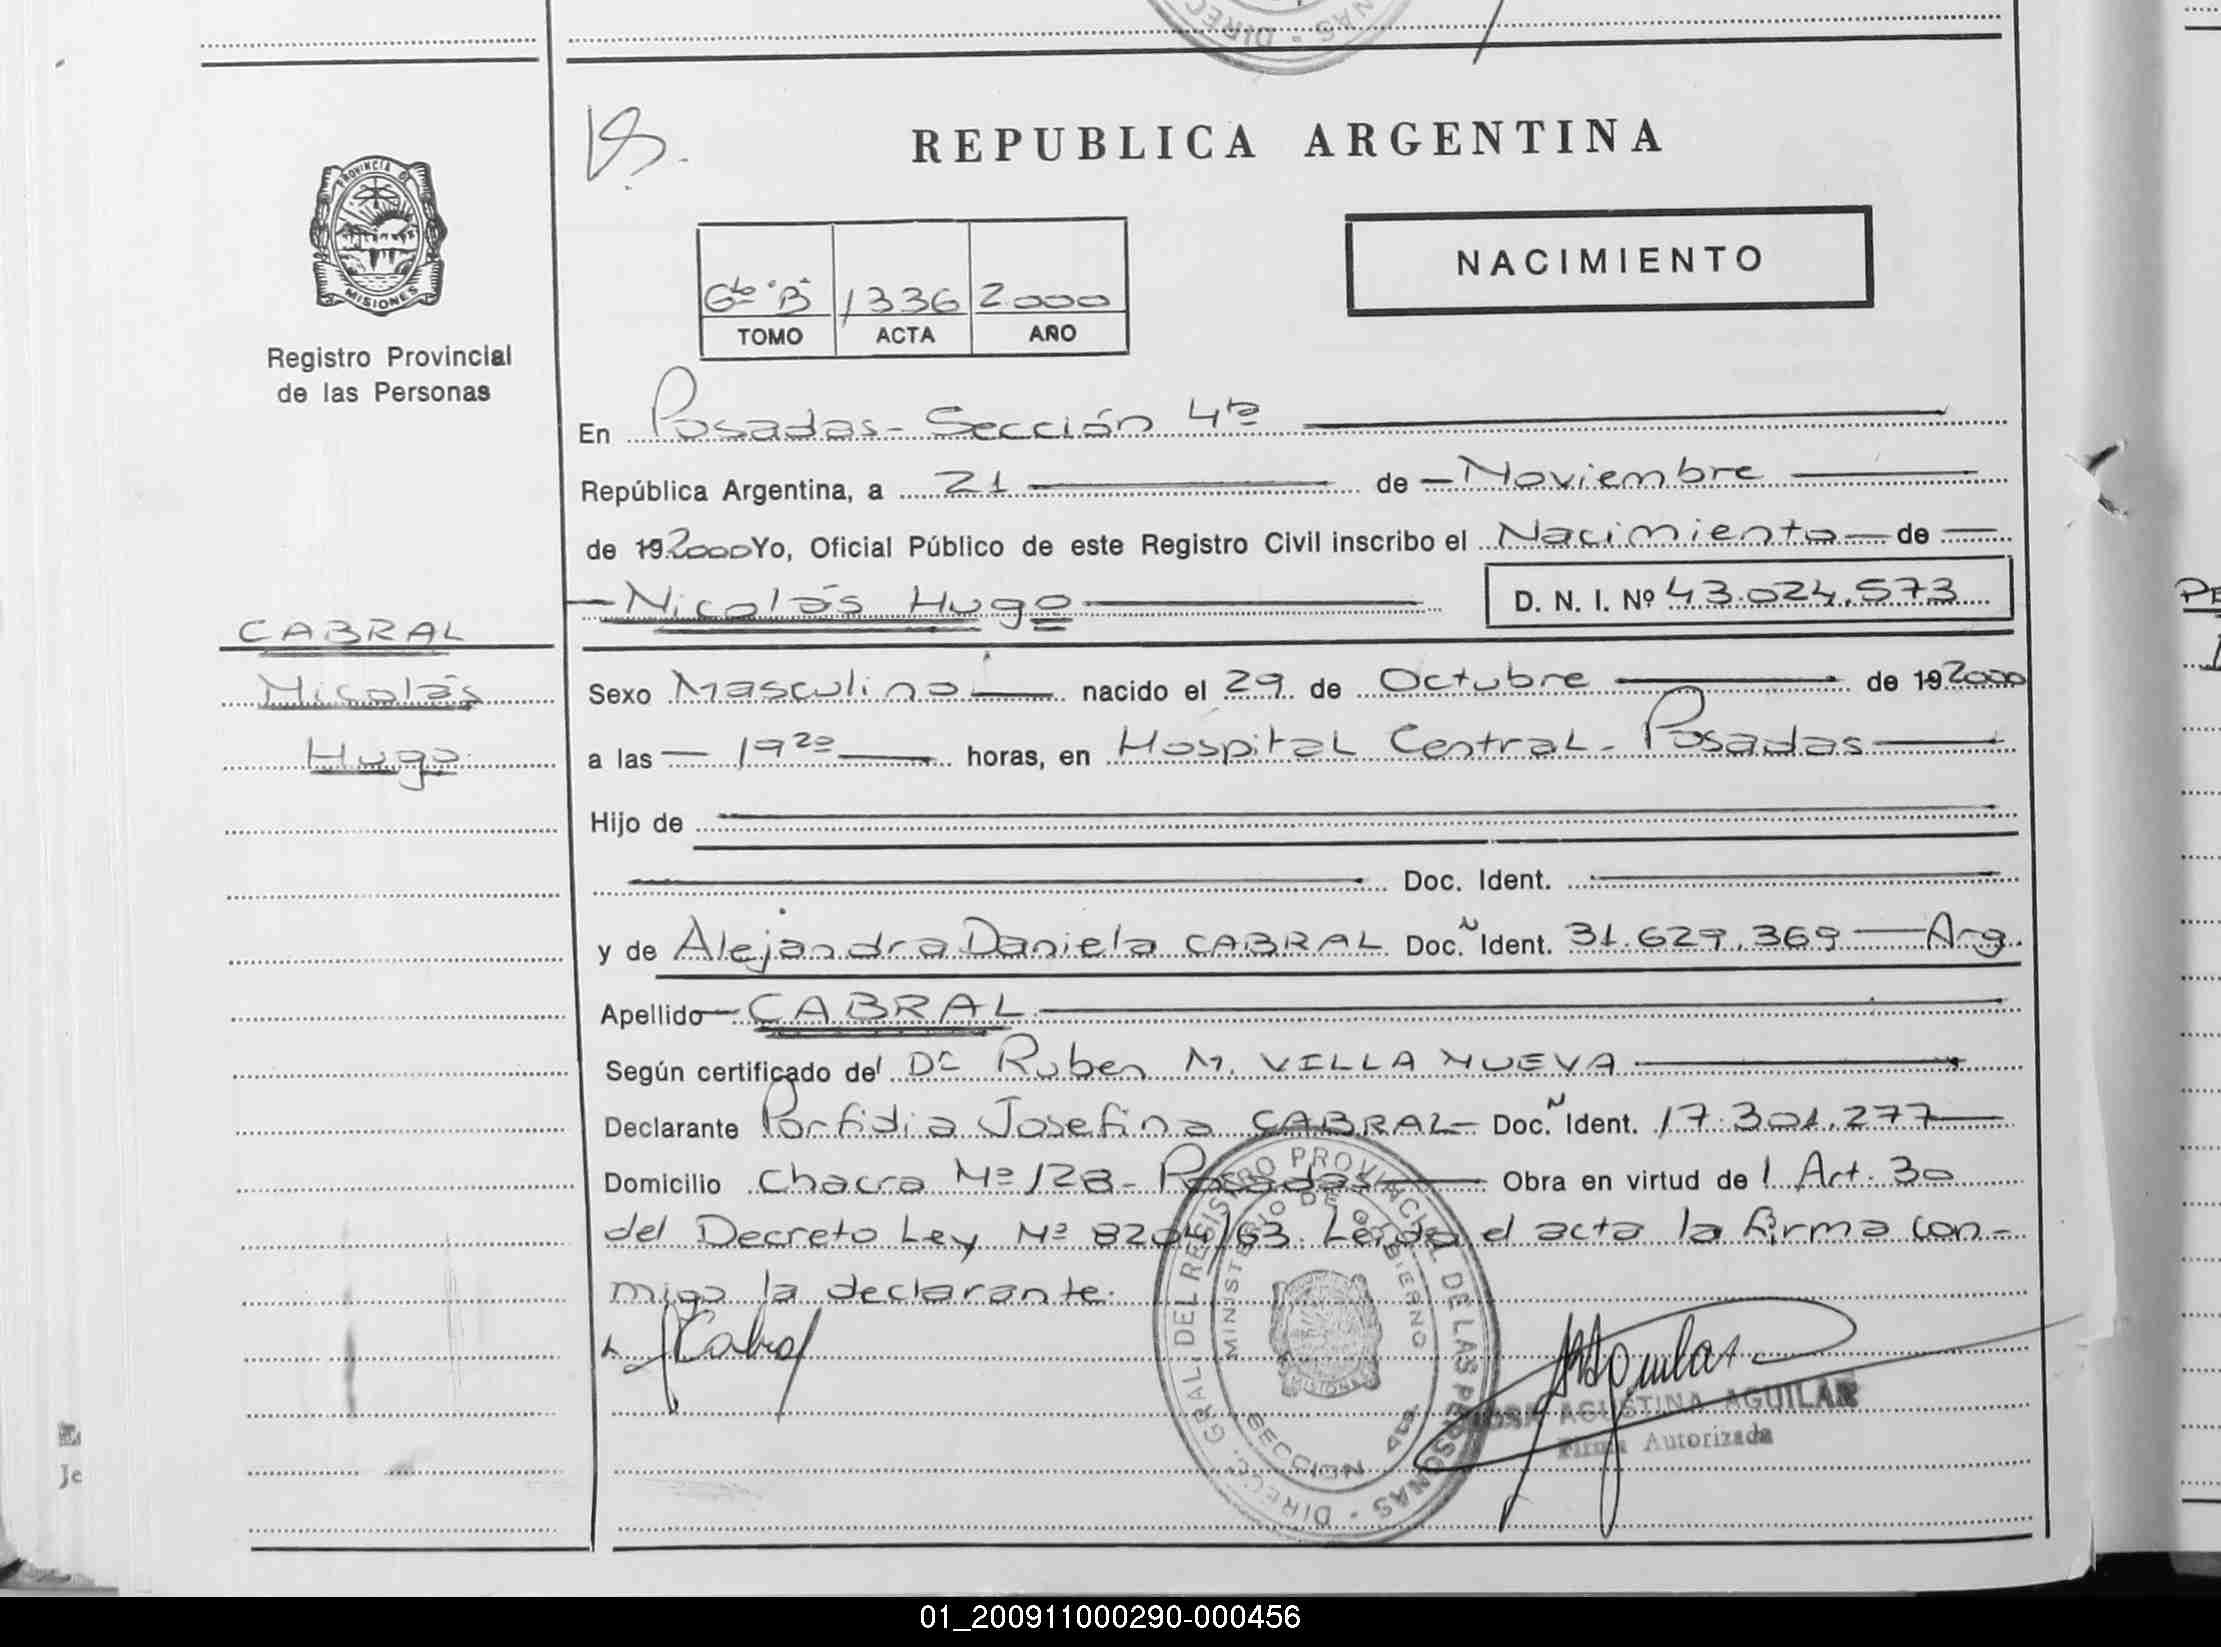 REPUBLICA ARGENTINA
NACIMIENTO
6to "B" 1336 2000
TOMO ACTA AÑO
PROVINCIA DE
MISIONES
Registro Provincial
de las Personas
CABRAL
Nicolás
Hugo
En Posadas - Sección 4ta
República Argentina, a 21 de Noviembre
de 19 2000 Yo, Oficial Público de este Registro Civil inscribo el Nacimiento de
Nicolás Hugo D. N. I. Nº 43.024.573
Sexo Masculino nacido el 29 de Octubre de 19 2000
a las 19 20 horas, en Hospital Central - Posadas
Hijo de
Doc. Ident.
y de Alejandra Daniela CABRAL Doc. N Ident. 31.629.369 — Arg.
Apellido CABRAL
Según certificado del Dr Ruben M. VILLANUEVA
Declarante Porfidia Josefina CABRAL - Doc. N Ident. 17.301.277
Domicilio Chacra Nº 128 - Posadas Obra en virtud del Art. 30
del Decreto Ley Nº 8204/63. Leida el acta la firma con-
migo la declarante.
Cabral
DIREC. GRAL. DEL REGISTRO PROVINCIAL DE LAS PERSONAS
MINISTERIO DE GOBIERNO
SECCION 4ta.
ROSA AGUSTINA AGUILAR
Firma Autorizada
Je
01_200911000290-000456